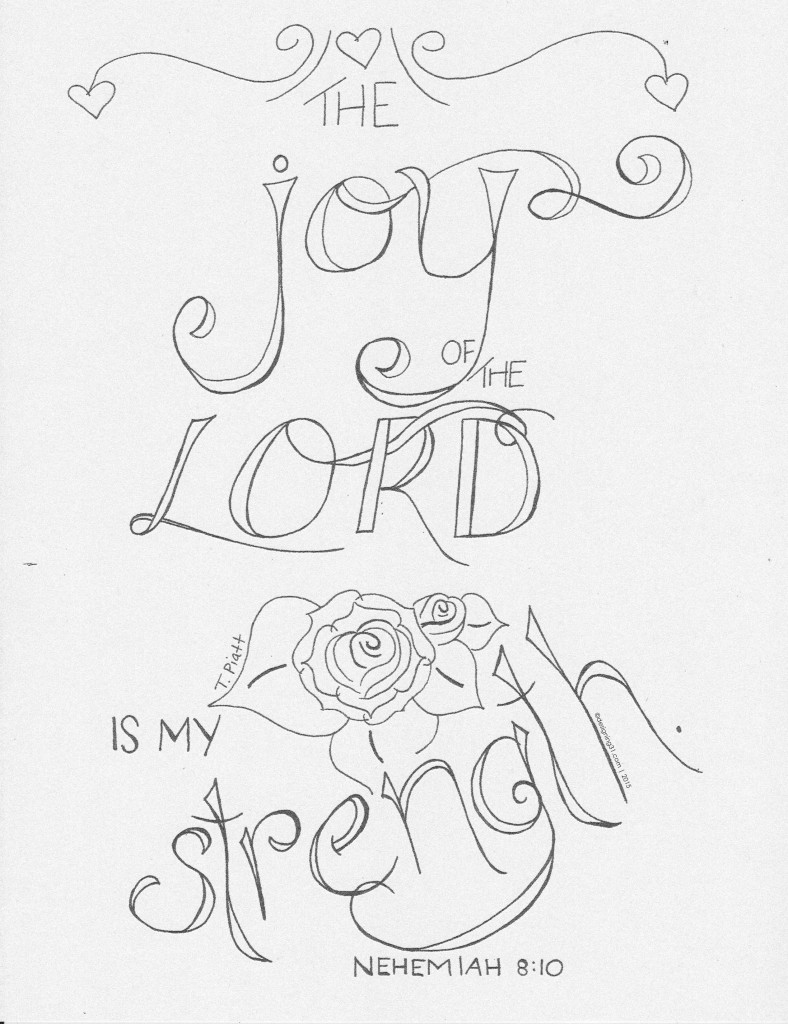 THE
joy
OF
THE
LORD
T. Piatt
IS MY
strength.
©designing31.com | 2015
NEHEMIAH 8:10